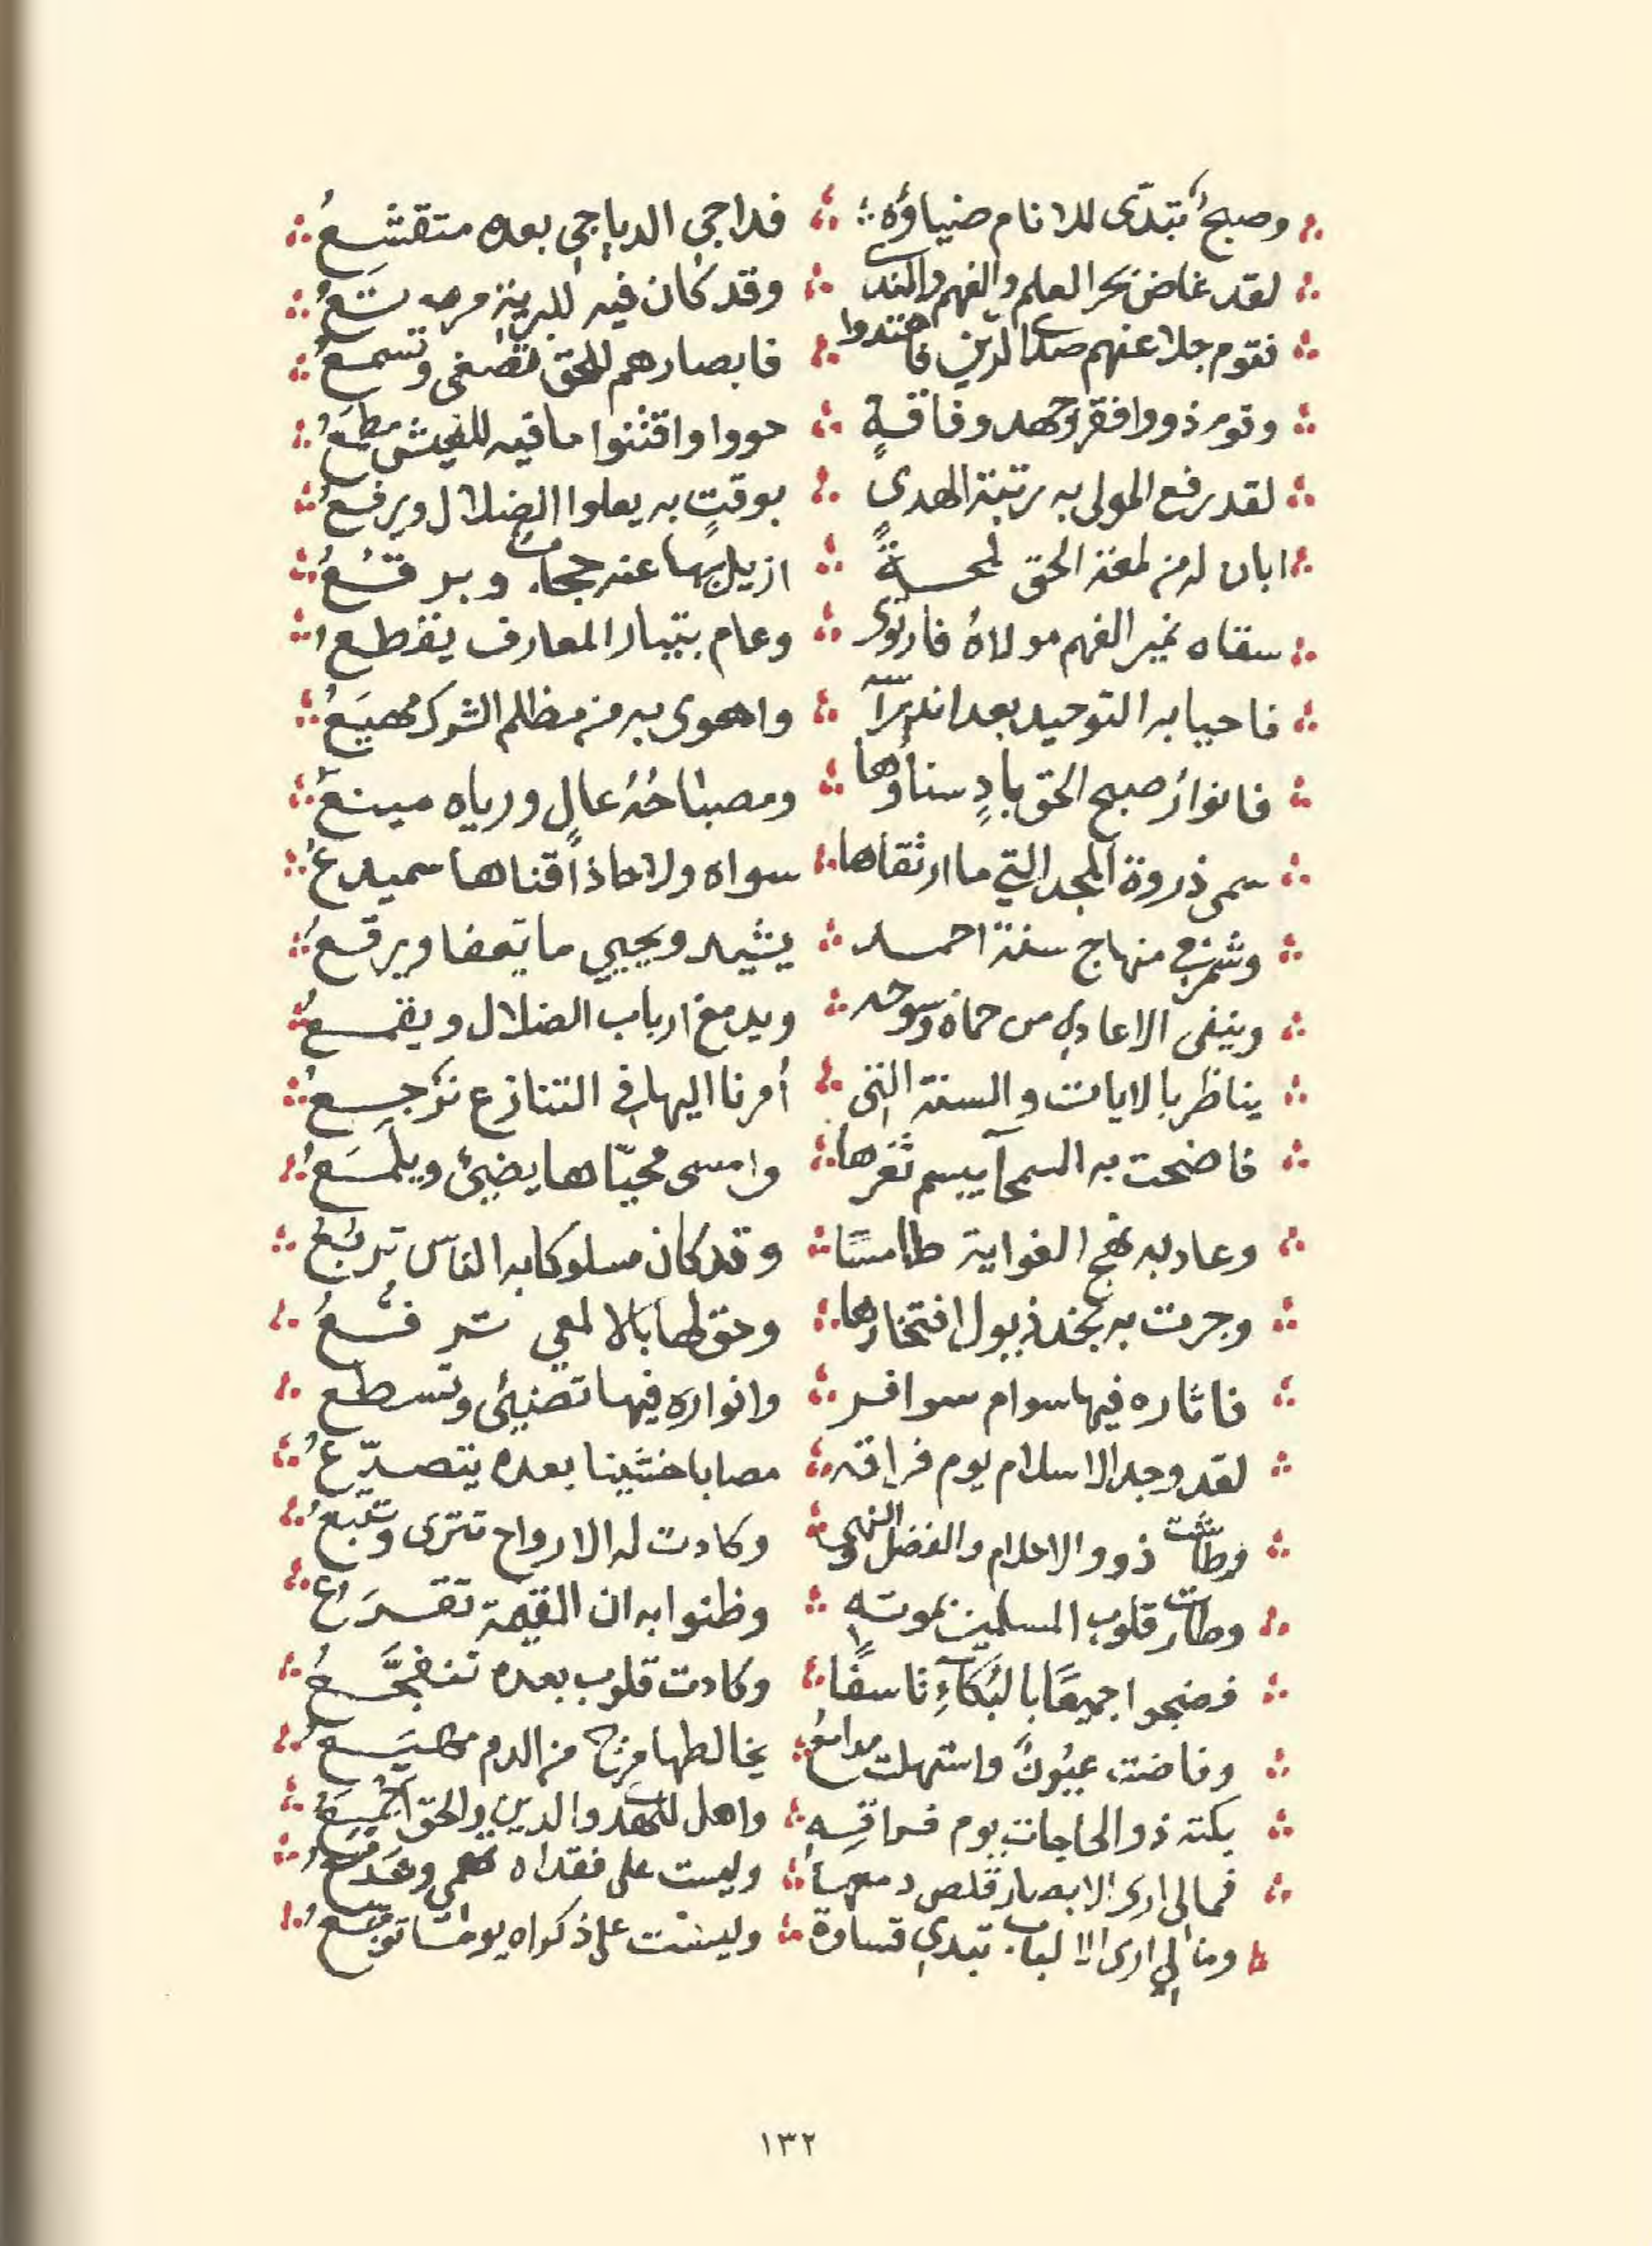 وصبحٌ تبدّى للانام ضياؤه فداجي الدياجي بعده متقشعُ
لقد غاض بحر العلم والفهم والندى وقد كان فيه للبرية مرتعُ
فقوم جلا عنهم صدى الرين فاهتدوا فابصارهم للحق تصغى وتسمعُ
وقوم ذووا فقر وجهد وفاقةٍ حووا واقتنوا ما فيه للعيش مطمعُ
لقد رفع المولى به رتبة الهدى بوقتٍ به يعلوا الضلال ويرفعُ
ابان له من لمعة الحق لمحةً ازيل بها عنه حجاب وبرقعُ
سقاه نمير الفهم مولاهُ فارتوى وعام بتيار المعارف يقطعُ
فاحيا به التوحيد بعد اندراسه واهوى به من مظلم الشرك مهيعُ
فانوارُ صبح الحق بادٍ سناؤها ومصباحُهُ عالٍ ورياه مينعُ
سمى ذروة المجد التي ما ارتقاها سواه ولا حاذا قناها سميدعُ
وشمر في منهاج سنة احمد يشيد ويحيي ما تعفا ويرقعُ
وينفى الاعادي من حماه وسوحه ويدمغ ارباب الضلال ويقمعُ
يناظر بالايات والسنة التي أمرنا اليها في التنازع نرجعُ
فاضحت به السمحآ يبسم ثغرها وامسى محيّاها يضيئ ويلمَعُ
وعاد به نهج الغواية طامسًا وقد كان مسلوكا به الناس تربَعُ
وجرت به نجد ذيول افتخارها وحق لها بالالمعي ترفعُ
فاثاره فيها سوام سوافر وانواره فيها تضيئ وتسطع
لقد وجد الاسلام يوم فراقه مصابا خشينا بعده يتصدّعُ
وطاشت ذوو الاحلام والفضل والنهى وكادت له الارواح تترى وتتبعُ
وطارت قلوب المسلمين بموته وظنوا به ان القيمة تقرَعُ
فضجوا جميعًا بالبُكآءِ تاسفًا وكادت قلوب بعده تتفجَّعُ
وفاضت عيُونٌ واستهلت مدامعُ يخالطها مزج من الدم مهيَعُ
بكته ذوو الحاجات يوم فراقهِ واهل الهدى والدين والحق اجمَعُ
فمالى ارى الابصار قلص دمعها وليست على فقداه تهمي وتدمَعُ
ومالي ارى الالباب تبدي قساوة وليست على ذكراه يوما توجعُ
١٣٢